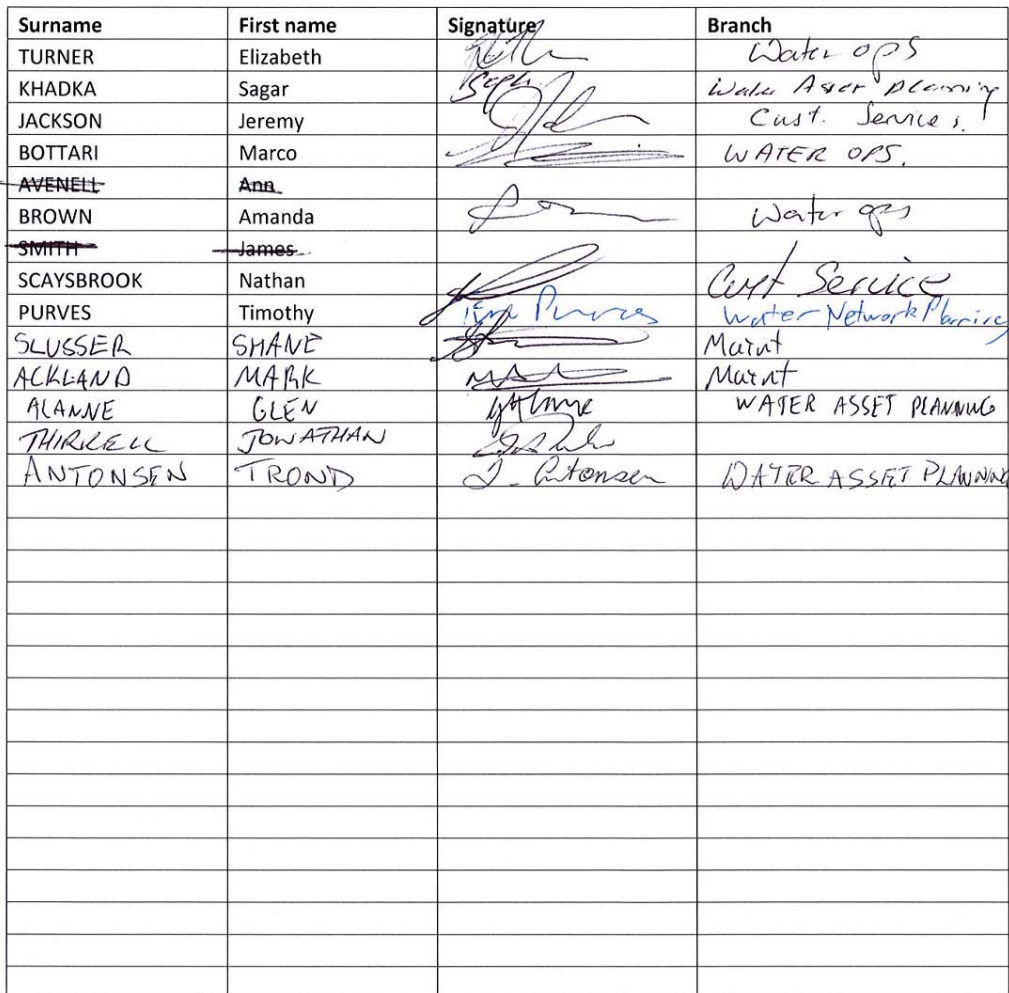 Surname First name Signature Branch
TURNER Elizabeth Water ops
KHADKA Sagar Water Asset planning
JACKSON Jeremy Cust. Services.
BOTTARI Marco WATER OPS.
AVENELL Ann
BROWN Amanda Water ops
SMITH James
SCAYSBROOK Nathan Cust Service
PURVES Timothy Tim Purves Water Network Planning
SLUSSER SHANE Maint
ACKLAND MARK Maint
ALANNE GLEN WATER ASSET PLANNING
THIRKELL JONATHAN
ANTONSEN TROND T. Antonsen WATER ASSET PLANNING